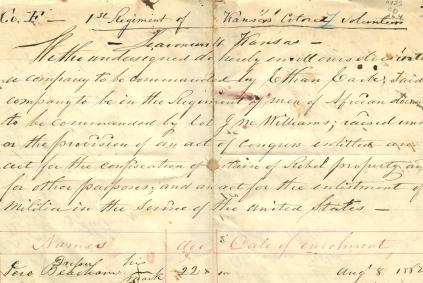 Co. F — 1st Regiment of Kansas Colored Volunteers
Leavenworth Kansas —
We the undersigned do hereby enroll ourselves into
a company to be commanded by Ethan Earle, said
company to be in the Regiment of men of African descent
to be commanded by Col J M Williams; raised under
the provision of an act of Congress entitled an
act for the confiscation of certain of Rebel property and
for other purposes; and an act for the enlistment of
Militia in the service of the United States —
Names age Date of enrolment
his
Beacham mark 22 Aug 8 1862